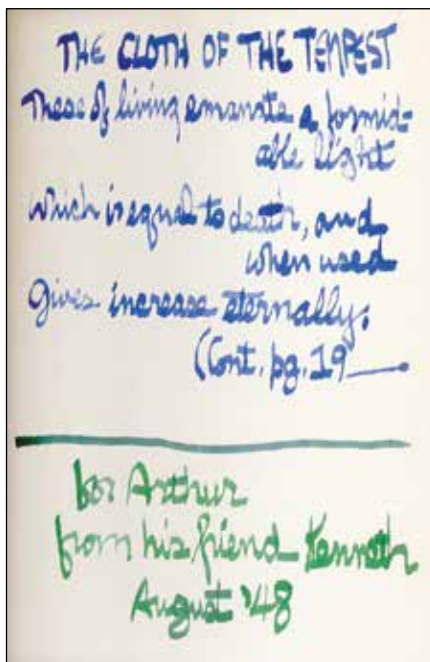 THE CLOTH OF THE TEMPEST
These of living emanate a formid-
able light
which is equal to death, and
when used
Gives increase eternally.
(Cont. pg. 19
for Arthur
from his friend Kenneth
August '48